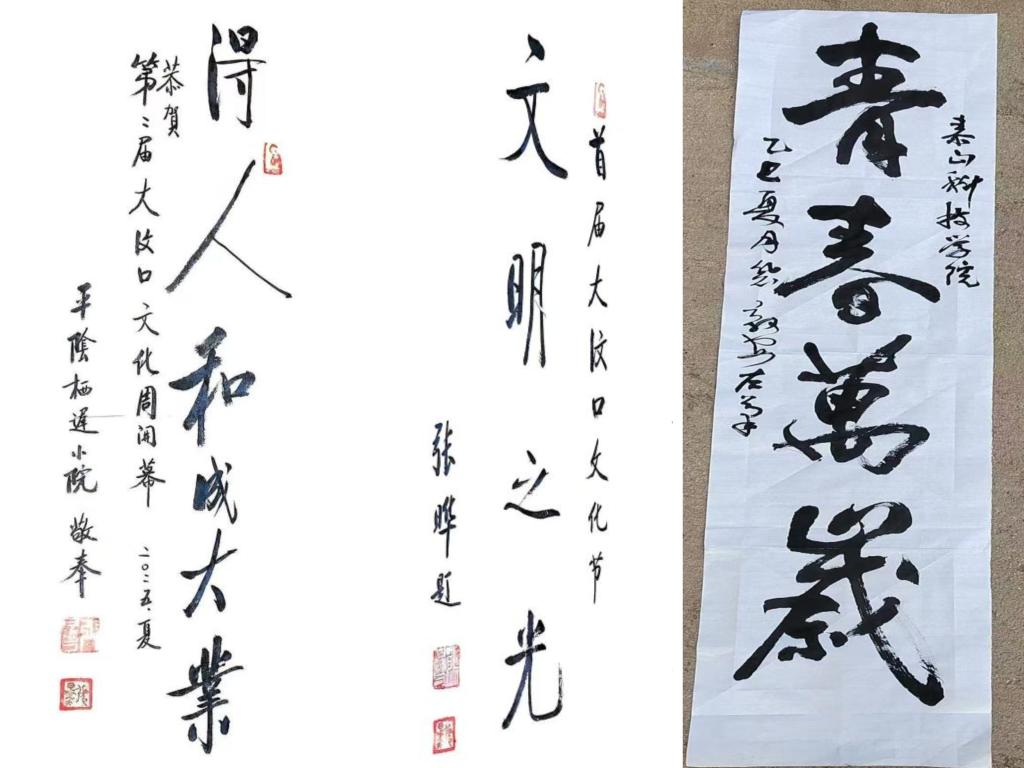 得人和成大業
恭賀
第二届大汶口文化周開幕 二〇二五.夏
平陰栖遲小院 敬奉
首届大汶口文化节
文明之光
張曄题
泰山科技学院
青春萬歲
乙巳夏月